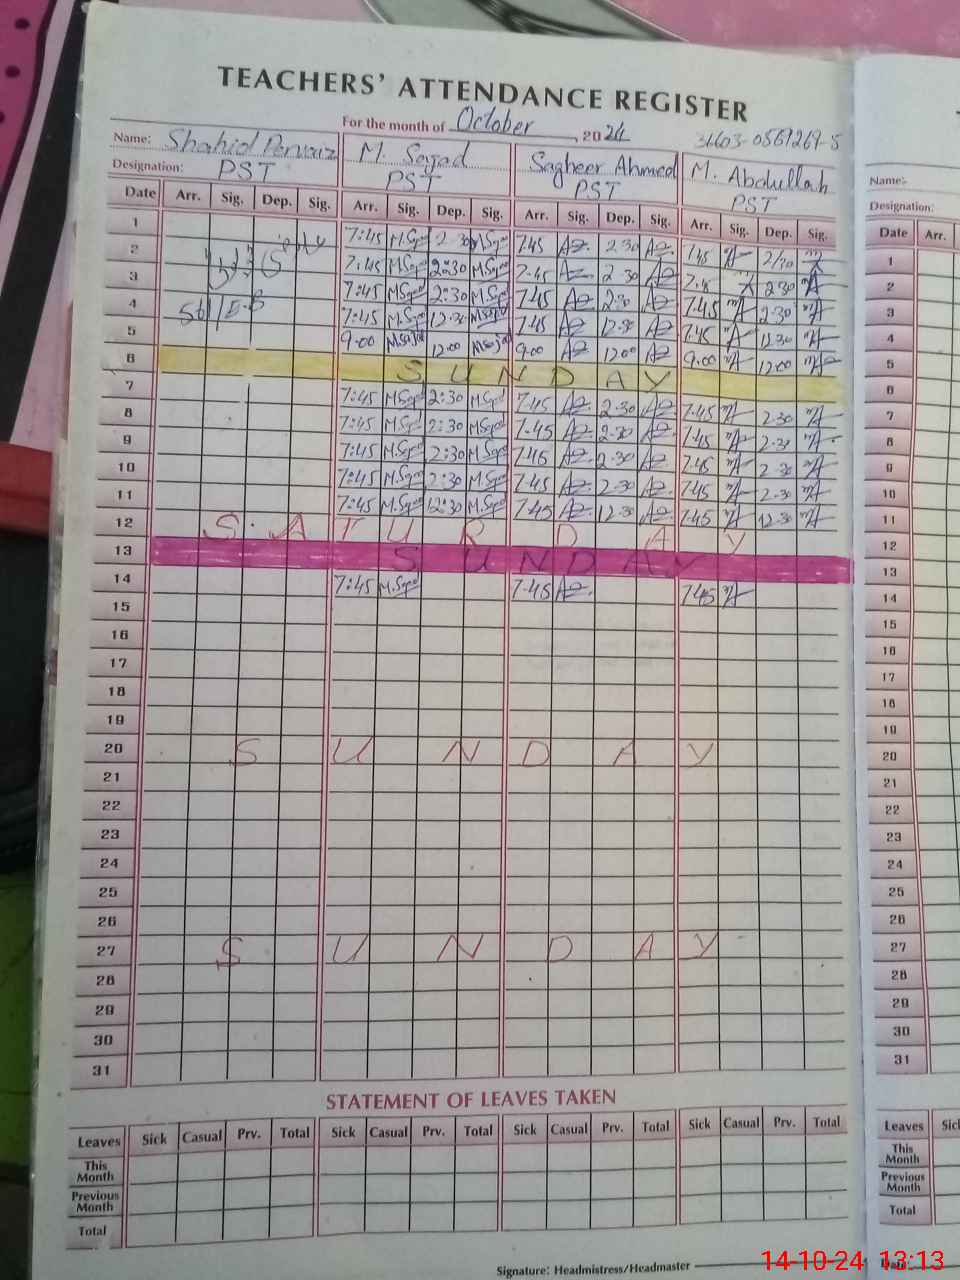 TEACHERS' ATTENDANCE REGISTER
For the month of October, 2024
31603-0569269-5
Name: Shahid Pervaiz M. Sajad Sagheer Ahmed M. Abdullah
Designation: PST PST PST PST
Date Arr. Sig. Dep. Sig. Arr. Sig. Dep. Sig. Arr. Sig. Dep. Sig. Arr. Sig. Dep. Sig.
1 7:45 M.Sajad 2:30 M.Sajad 7:45 2:30 7:45 2/30
2 7:45 M.Sajad 2:30 M.Sajad 7:45 2:30 2:30
3 7:45 M.Sajad 2:30 M.Sajad 7:45 2:30 7:45 2:30
4 7:45 M.Sajad 12:30 M.Sajad 7:45 12:30 7:45 12:30
5 9:00 M.Sajad 12:00 M.Sajad 9:00 12:00 9:00 12:00
6 SUNDAY
7 7:45 M.Sajad 2:30 M.Sajad 7:45 2:30 7:45 2:30
8 7:45 M.Sajad 2:30 M.Sajad 7:45 2:30 7:45 2:30
9 7:45 M.Sajad 2:30 M.Sajad 7:45 2:30 7:45 2:30
10 7:45 M.Sajad 2:30 M.Sajad 7:45 2:30 7:45 2:30
11 7:45 M.Sajad 12:30 M.Sajad 7:45 12:30 7:45 12:30
12 SATURDAY
13 SUNDAY
14 7:45 M.Sajad 7:45 7:45
15
16
17
18
19
20 SUNDAY
21
22
23
24
25
26
27 SUNDAY
28
29
30
31
STATEMENT OF LEAVES TAKEN
Leaves Sick Casual Prv. Total Sick Casual Prv. Total Sick Casual Prv. Total Sick Casual Prv. Total
This Month
Previous Month
Total
Signature: Headmistress/Headmaster
Name:-
Designation:
Date Arr.
1
2
3
4
5
6
7
8
9
10
11
12
13
14
15
16
17
18
19
20
21
22
23
24
25
26
27
28
29
30
31
Leaves
This Month
Previous Month
Total
Date:
14-10-24 13:13